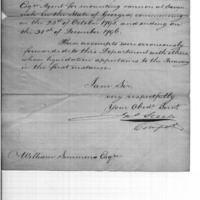 Esqr. Agent for mounting cannon at Savan-
nah in the State of Georgia, commencing
on the 23d of October 1795, and ending on
the 31st of December 1796.
These accounts were erroneously
forwarded to this Department with others
whose liquidation appertains to the Treasury
in the first instance.
I am Sir,
very respectfully
Your Obedt. Servt.
Compt.
William Simmons Esqr.